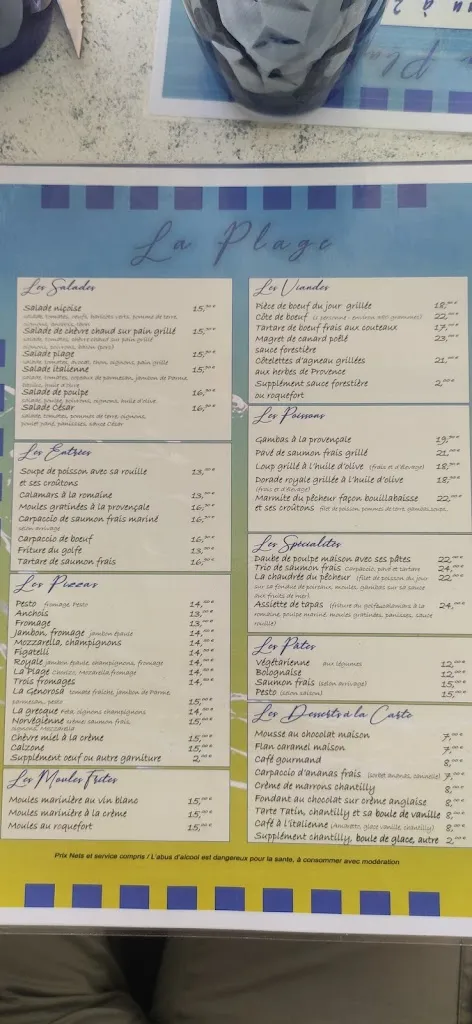 La Plage
Les Salades
Salade niçoise 15,00 €
Salade de chèvre chaud sur pain grillé 15,00 €
salade, tomates, chèvre chaud sur pain grillé
Salade plage 15,00 €
salade, tomates, avocat, thon, oignons, pain grillé
Salade italienne 15,00 €
salade, tomates, copeaux de parmesan, jambon de Parme,
basilic, huile d'olive
Salade de poulpe 16,00 €
salade, poulpe, poivrons, oignons, huile d'olive,
Salade César 16,00 €
salade, tomates, pommes de terre, oignons,
poulet pané, panisses, sauce César
Les Entrées
Soupe de poisson avec sa rouille 13,00 €
et ses croûtons
Calamars à la romaine 13,00 €
Moules gratinées à la provençale 16,00 €
Carpaccio de saumon frais mariné 16,00 €
selon arrivage
Carpaccio de boeuf 16,00 €
Friture du golfe 13,00 €
Tartare de saumon frais 16,00 €
Les Pizzas
Pesto fromage, Pesto 14,00 €
Anchois 13,00 €
Fromage 13,00 €
Jambon, fromage jambon épaule 14,00 €
Mozzarella, champignons 14,00 €
Figatelli 14,00 €
Royale jambon épaule, champignons, fromage 14,00 €
La Plage Chorizo, Mozzarella, fromage 14,00 €
Trois fromages 14,00 €
La Génorosa tomate fraîche, jambon de Parme, 15,00 €
parmesan, pesto
La grecque Féta, oignons, champignons 14,00 €
Norvégienne crème, saumon frais, 15,00 €
oignons, Mozzarella
Chèvre miel à la crème 15,00 €
Calzone 15,00 €
Supplément oeuf ou autre garniture 2,00 €
Les Moules Frites
Moules marinière au vin blanc 15,00 €
Moules marinière à la crème 15,00 €
Moules au roquefort 15,00 €
Les Viandes
Pièce de boeuf du jour grillée 18,00 €
Côte de boeuf (1 personne - environ 400 grammes) 22,00 €
Tartare de boeuf frais aux couteaux 17,00 €
Magret de canard poêlé 23,00 €
sauce forestière
Côtelettes d'agneau grillées 21,00 €
aux herbes de Provence
Supplément sauce forestière 2,00 €
ou roquefort
Les Poissons
Gambas à la provençale 19,00 €
Pavé de saumon frais grillé 21,00 €
Loup grillé à l'huile d'olive (frais et d'élevage) 18,00 €
Dorade royale grillée à l'huile d'olive 18,00 €
(frais et d'élevage)
Marmite du pêcheur façon bouillabaisse 22,00 €
et ses croûtons filet de poisson, pommes de terre, gambas, soupe.
Les Spécialités
Daube de poulpe maison avec ses pâtes 22,00 €
Trio de saumon frais Carpaccio, pavé et tartare 24,00 €
La chaudrée du pêcheur (filet de poisson du jour 22,00 €
sur sa fondue de poireaux, moules, gambas sur sa sauce
aux fruits de mer)
Assiette de tapas (friture du golfe, calamars à la 24,00 €
romaine, poulpe mariné, moules gratinées, panisses, sauce
rouille)
Les Pâtes
Végétarienne aux légumes 12,00 €
Bolognaise 12,00 €
Saumon frais (selon arrivage) 15,00 €
Pesto (selon saison) 15,00 €
Les Desserts à la Carte
Mousse au chocolat maison 7,00 €
Flan caramel maison 7,00 €
Café gourmand 8,00 €
Carpaccio d'ananas frais (sorbet ananas, cannelle) 7,00 €
Crème de marrons chantilly 8,00 €
Fondant au chocolat sur crème anglaise 8,00 €
Tarte Tatin, chantilly et sa boule de vanille 8,00 €
Café à l'italienne (Amaretto, glace vanille, chantilly) 8,00 €
Supplément chantilly, boule de glace, autre 2,00 €
Prix Nets et service compris / L'abus d'alcool est dangereux pour la santé, à consommer avec modération